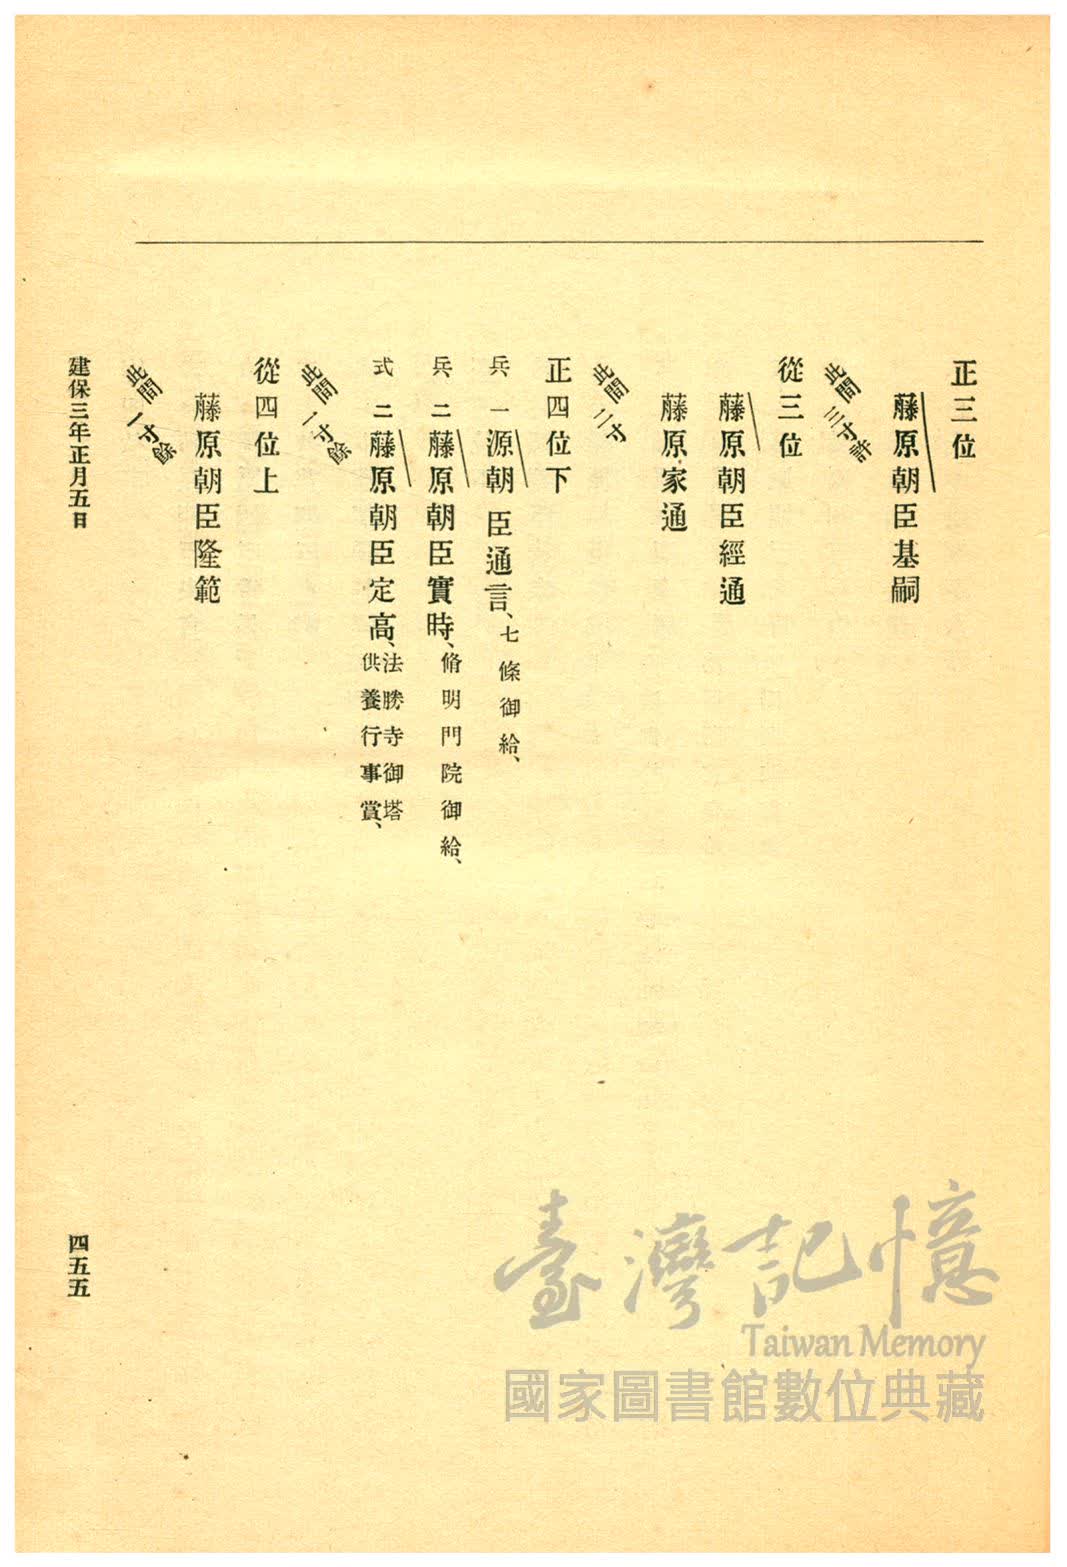 正三位
藤原朝臣基嗣
此間三寸許
從三位
藤原朝臣經通
藤原家通
此間二寸
正四位下
兵一源朝臣通言、七條御給、
兵二藤原朝臣實時、脩明門院御給、
式二藤原朝臣定高、法勝寺御塔
供養行事賞、
此間一寸餘
從四位上
藤原朝臣隆範
此間一寸餘
建保三年正月五日
四五五
臺灣記憶
Taiwan Memory
國家圖書館數位典藏